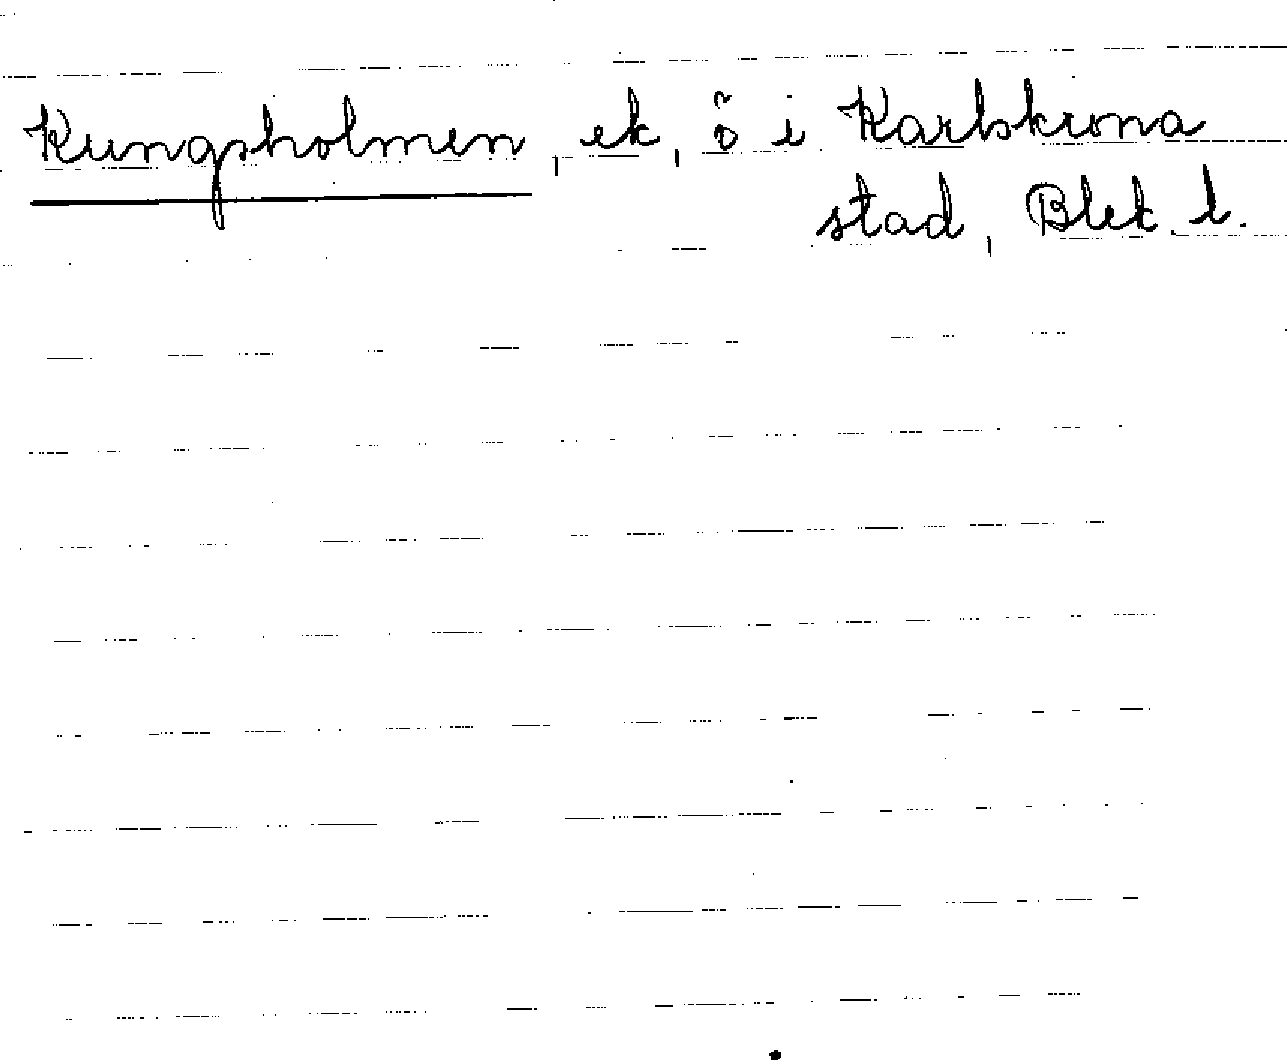 Kungsholmen, ek, ö i Karlskrona
stad, Blek. l.